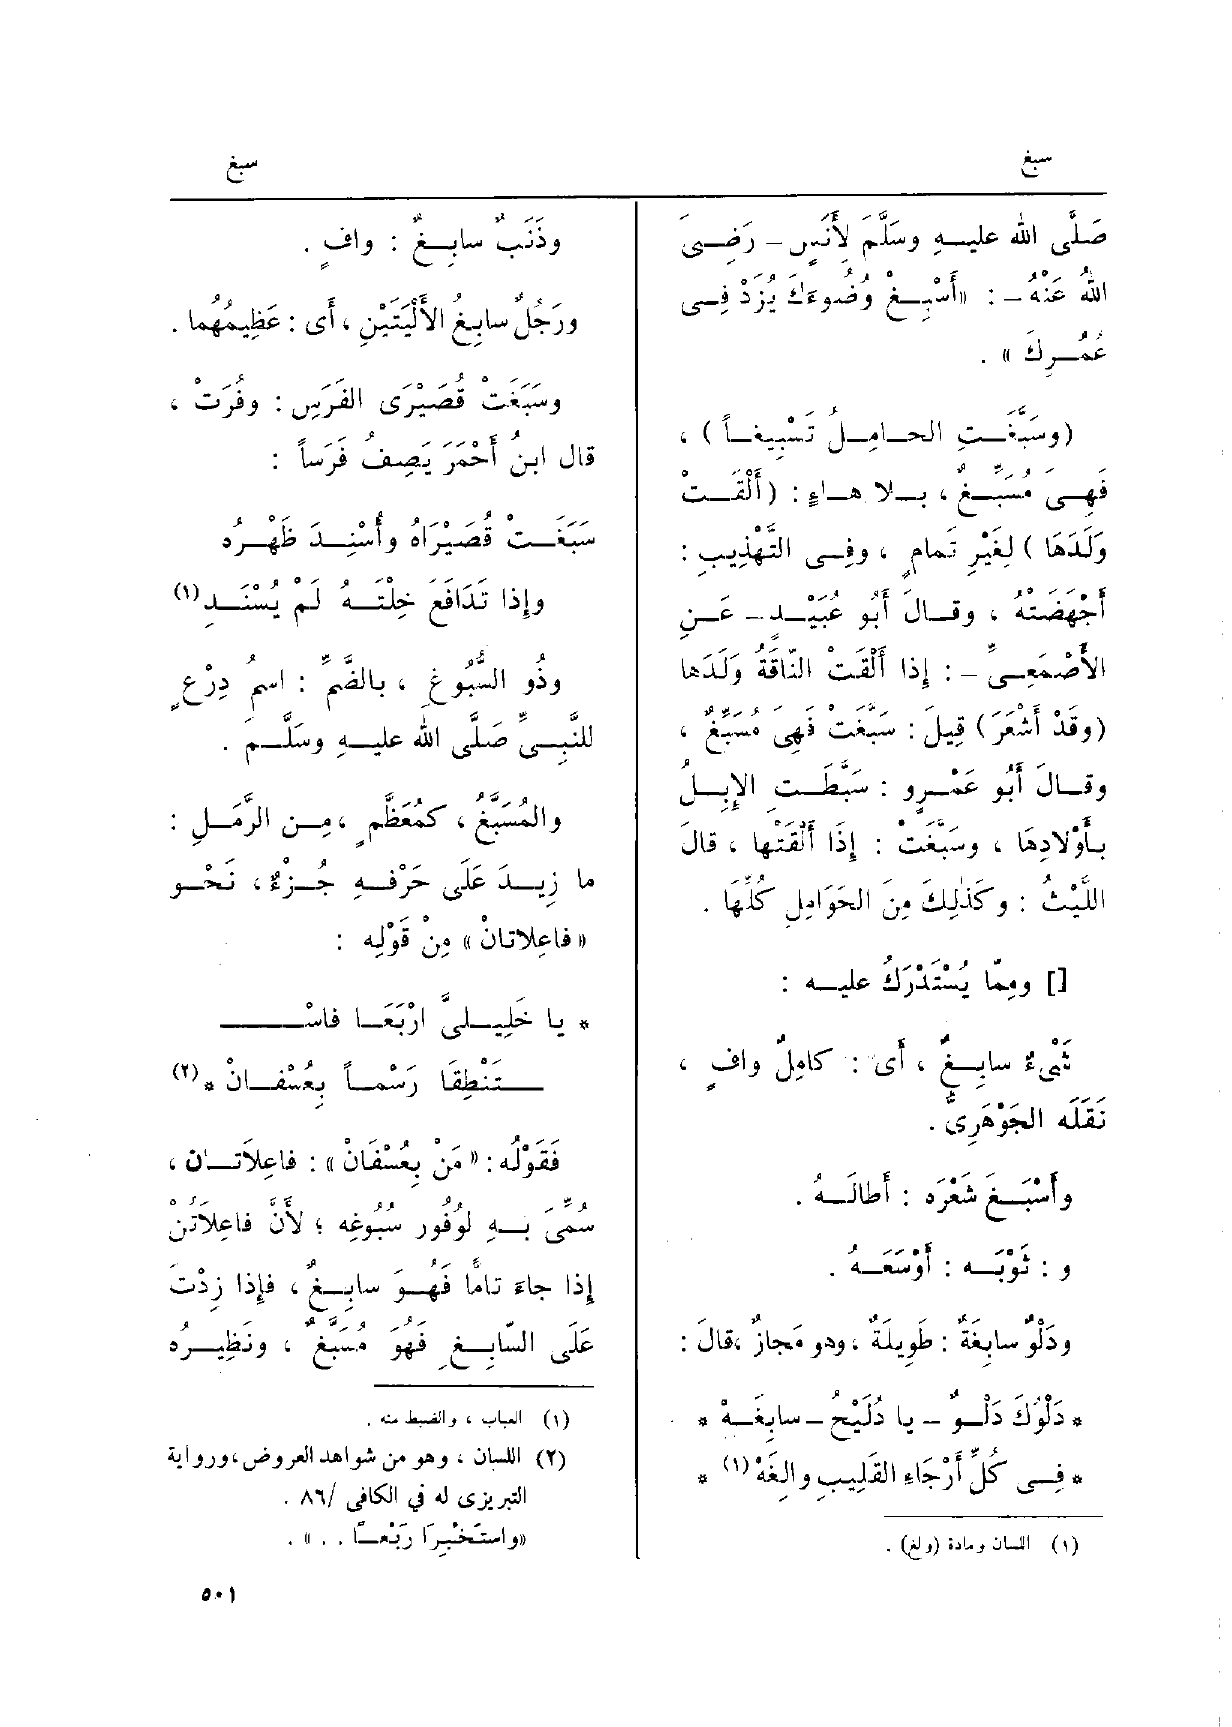 سبغ
سبغ
صَلَّى اللهُ عليهِ وسَلَّمَ لِأَنَسٍ – رَضِىَ
اللهُ عَنْهُ – : «أَسْبِغْ وُضُوءَكَ يُزَدْ فِى
عُمُرِكَ » .
(وسَبَّغَتِ الحامِلُ تَسْبِيغاً ) ،
فَهِىَ مُسَبِّغٌ ، بلا هاءٍ : (أَلْقَتْ
وَلَدَهَا ) لِغَيْرِ تَمامٍ ، وفِى التَّهْذِيبِ :
أَجْهَضَتْهُ ، وقالَ أَبُو عُبَيْدٍ – عَنِ
الأَصْمَعِىِّ – : إِذا أَلْقَتْ النّاقَةُ وَلَدَها
(وقَدْ أَشْعَرَ) قِيلَ : سَبَّغَتْ فَهِىَ مُسَبِّغٌ ،
وقالَ أَبُو عَمْرٍو : سَبَّطَتِ الإِبِلُ
بأَوْلادِهَا ، وسَبَّغَتْ : إِذَا أَلْقَتْها ، قالَ
اللَّيْثُ : وكَذٰلِكَ مِنَ الحَوَامِلِ كُلِّهَا .
[] ومِمّا يُسْتَدْرَكُ عليه :
شَىْءٌ سابِغٌ ، أَى : كامِلٌ وافٍ ،
نَقَلَه الجَوْهَرِىُّ .
وأَسْبَغَ شَعْرَه : أَطالَهُ .
و : ثَوْبَه : أَوْسَعَهُ .
ودَلْوٌ سابِغَةٌ : طَوِيلَةٌ ، وهو مَجازٌ ،قالَ :
* دَلْوُكَ دَلْوٌ – يا دُلَيْحُ – سابِغَهْ *
* فِى كُلِّ أَرْجَاءِ القَلِيبِ والِغَهْ (١) *
(١) اللسان ومادة (ولغ) .
وذَنَبٌ سابِغٌ : وافٍ .
ورَجُلٌ سابِغُ الأَلْيَتَيْنِ ، أَى : عَظِيمُهُما .
وسَبَغَتْ قُصَيْرَى الفَرَسِ : وفُرَتْ ،
قال ابنُ أَحْمَرَ يَصِفُ فَرَساً :
سَبَغَتْ قُصَيْرَاهُ وأُسْنِدَ ظَهْرُه
وإِذا تَدَافَعَ خِلْتَهُ لَمْ يُسْنَدِ (١)
وذُو السُّبُوغِ ، بالضَّمِّ : اسمُ دِرْعٍ
للنَّبِىِّ صَلَّى الله عليهِ وسَلَّمَ .
والمُسَبَّغُ ، كمُعَظَّمٍ ،مِن الرَّمَلِ :
ما زِيدَ عَلَى حَرْفِهِ جُزْءٌ، نَحْو
« فاعِلاتانْ » مِنْ قَوْلِه :
* يا خَلِيلىَّ ارْبَعَا فاسْـ
ـتَنْطِقَا رَسْماً بِعُسْفانْ * (٢)
فَقَوْلُه : « مَنْ بِعُسْفَانْ » : فاعِلاتانْ ،
سُمِّىَ بهِ لوُفُورِ سُبُوغِه ؛ لأَنَّ فاعِلاَتُنْ
إِذا جاءَ تامًّا فَهُوَ سابِغٌ ، فإِذا زِدْتَ
عَلَى السّابِغِ فَهُوَ مُسَبَّغٌ ، ونَظِيرُه
(١) العباب ، والضبط منه .
(٢) اللسان ، وهو من شواهد العروض ،ورواية
التبريزى له في الكافى /٨٦ .
«واستَخْبِرَا رَبْعًا . . » .
٥٠١